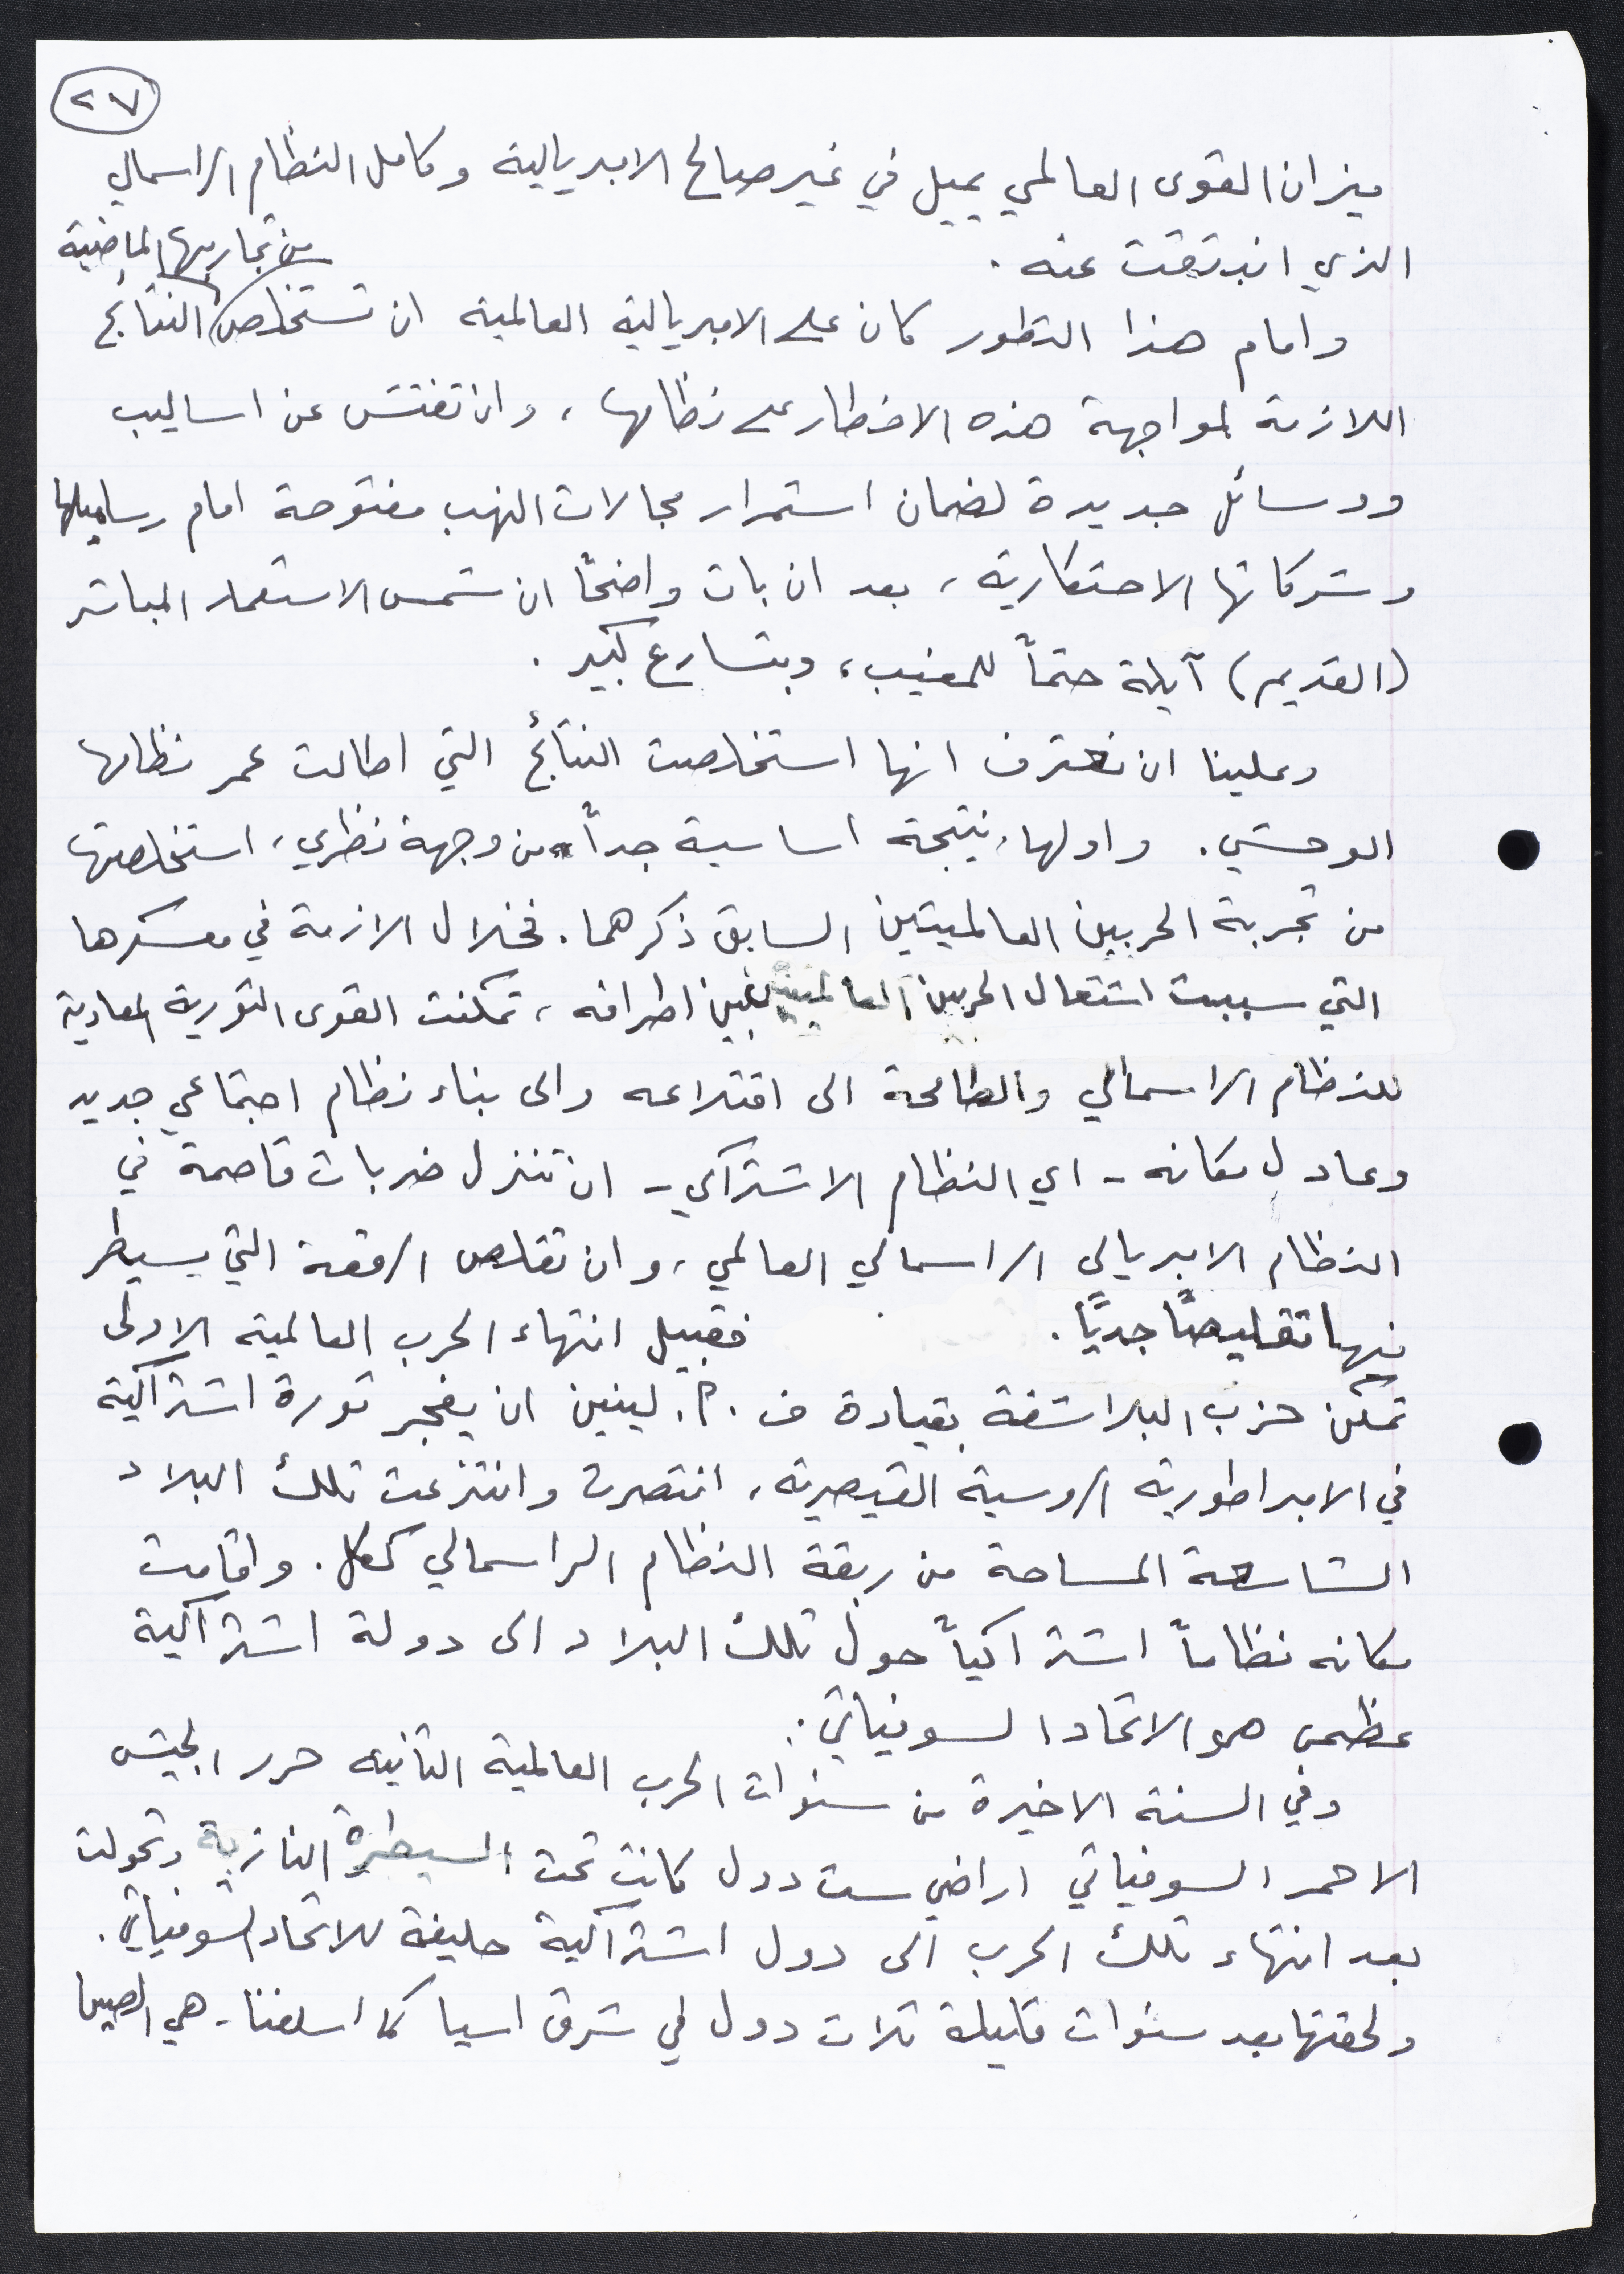 ٢٧
ميزان القوى العالمي يميل في غير صالح الامبريالية وكامل النظام الراسمالي
الذي انبثقت عنه.
وامام هذا التطور كان على الامبريالية العالمية ان تستخلص من تجاربها الماضية النتائج
اللازمة لمواجهة هذه الاخطار على نظامها، وان تفتش عن اساليب
ووسائل جديدة لضمان استمرار مجالات النهب مفتوحة امام رساميلها
وشركاتها الاحتكارية، بعد ان بات واضحًا ان شمس الاستعمار المباشر
(القديم) آيلة حتماً للمغيب، وبتسارع كبير.
وعلينا ان نعترف انها استخلصت النتائج التي اطالت عمر نظامها
الوحشي. واولها، نتيجة اساسية جداً من وجهة نظري، استخلصتها
من تجربة الحربين العالميتين السابق ذكرهما. فخلال الازمة في معسكرها
التي سببت اشتعال الحربين العالميتين بين اطرافه، تمكنت القوى الثورية المعادية
للنظام الراسمالي والطامحة الى اقتلاعه والى بناء نظام اجتماعي جديد
وعادل مكانه - اي النظام الاشتراكي - ان تنزل ضربات قاصمة في
النظام الامبريالي الراسمالي العالمي، وان تقلص الرقعة التي يسيطر
فيها تقليصًا جديًا. فقبيل انتهاء الحرب العالمية الاولى
تمكن حزب البلاشفة بقيادة ف. ا. لينين ان يفجر ثورة اشتراكية
في الامبراطورية الروسية القيصرية، انتصرت وانتزعت تلك البلاد
الشاسعة المساحة من ربقة النظام الراسمالي ككل. واقامت
مكانه نظاماً اشتراكياً حول تلك البلاد الى دولة اشتراكية
عظمى هو الاتحاد السوفياتي.
وفي السنة الاخيرة من سنوات الحرب العالمية الثانيه حرر الجيش
الاحمر السوفياتي اراضي ست دول كانت تحت السيطرة النازية وتحولت
بعد انتهاء تلك الحرب الى دول اشتراكية حليفة للاتحاد السوفياتي.
ولحقتها بعد سنوات قليلة ثلاث دول في شرق اسيا كما اسلفنا - هي الصين